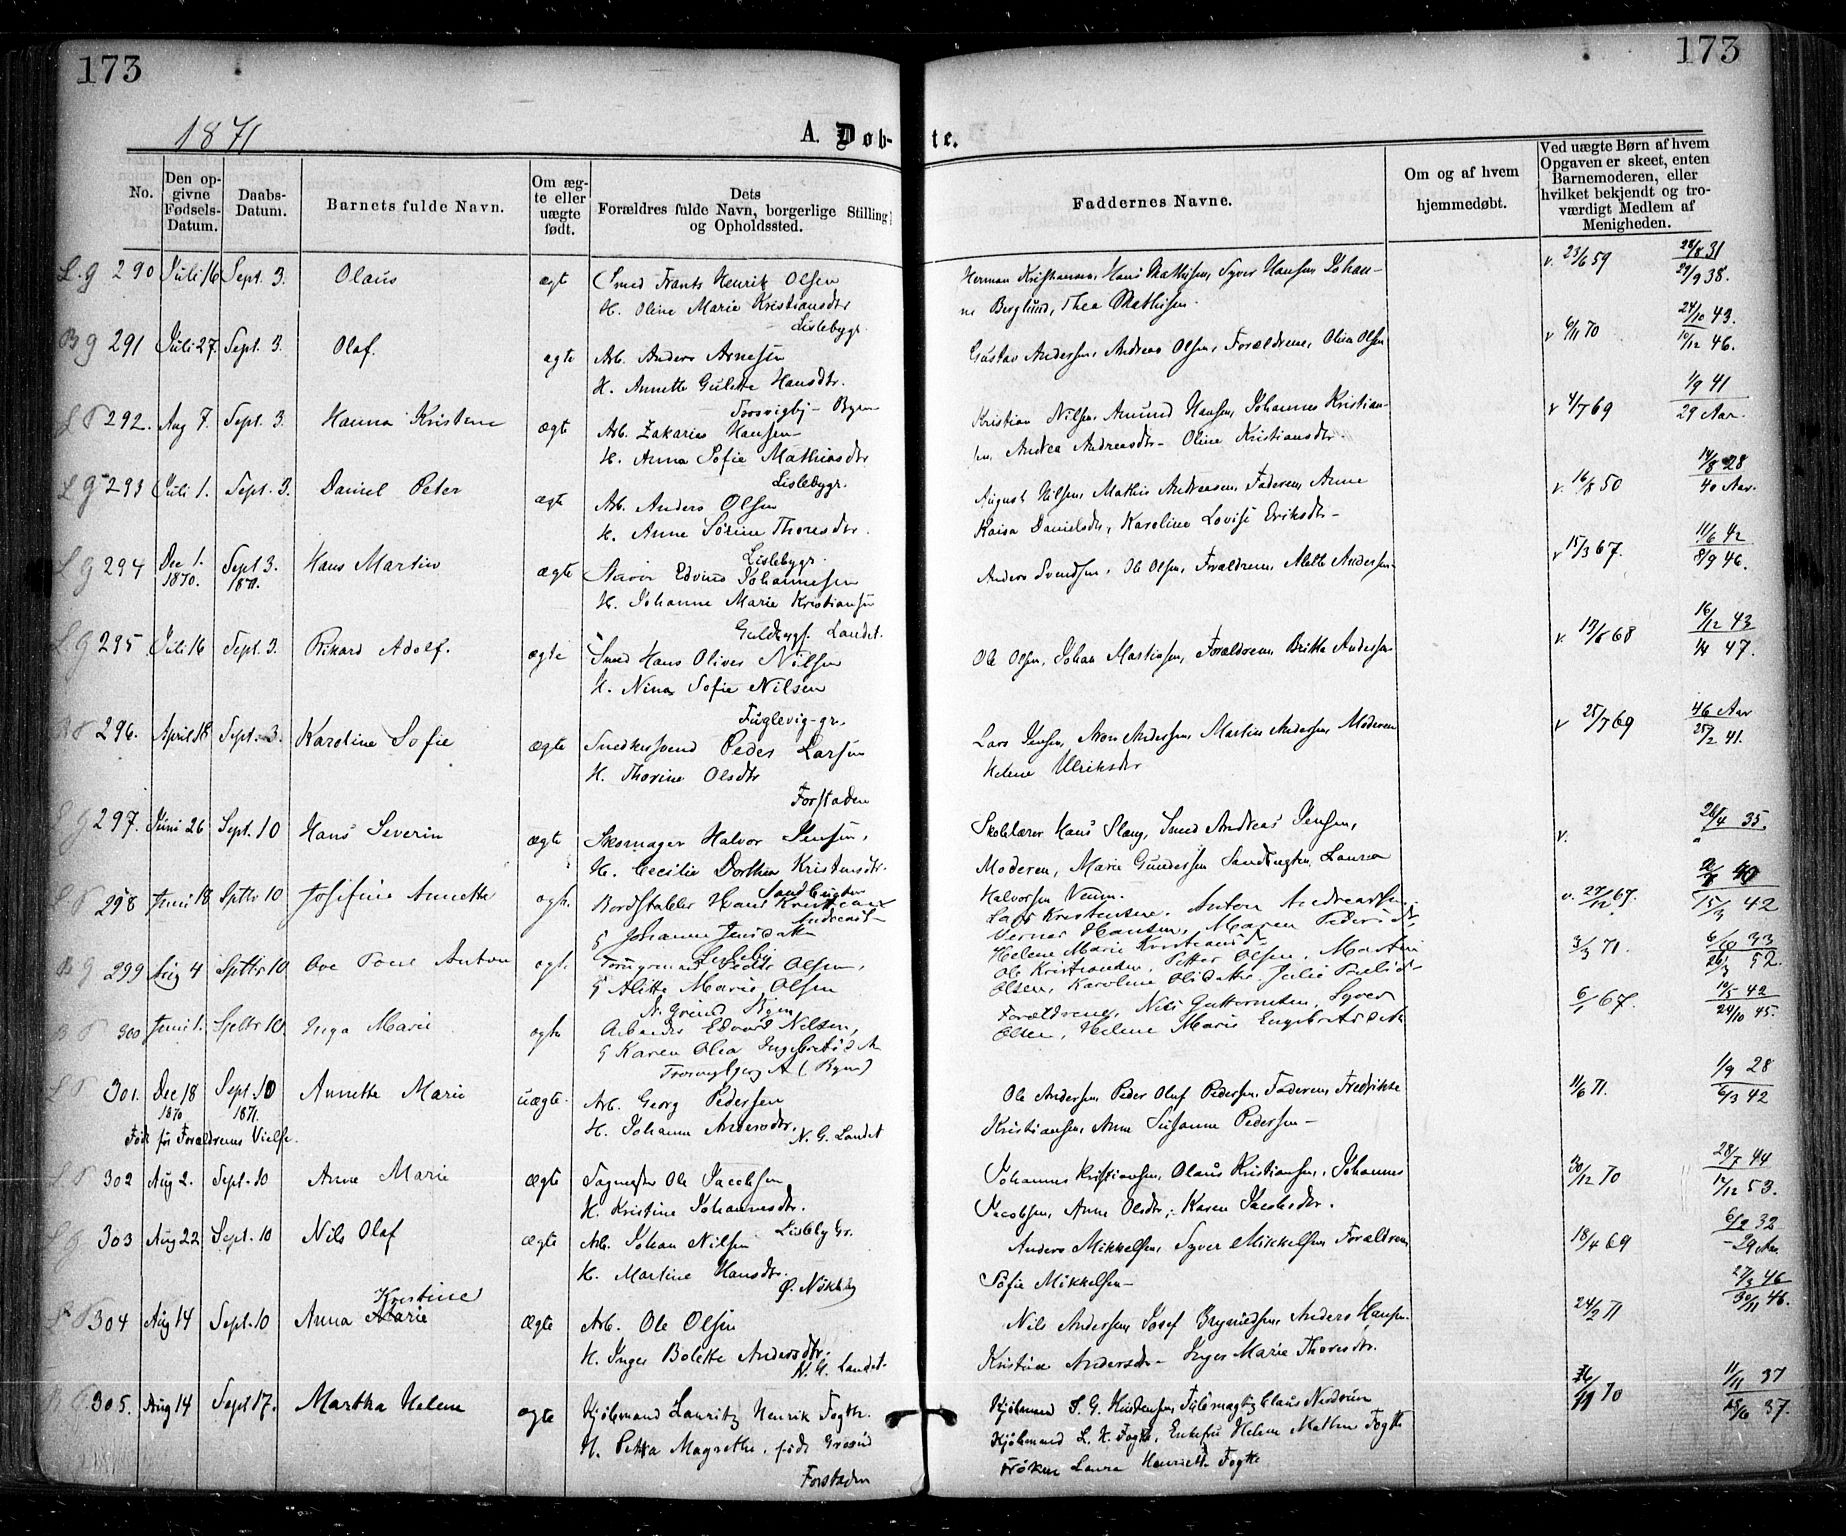 173
173
1871
A. Døb-
te.
No.
Den op-
givne
Fødsels-
Datum.
Daabs-
Datum.
Barnets fulde Navn.
Om æg-
te eller
uægte
født.
Dets
Forældres fulde Navn, borgerlige Stilling
og Opholdssted.
Faddernes Navne.
Om og af hvem
hjemmedøbt.
Ved uægte Børn af hvem
Opgaven er skeet, enten
Barnemoderen, eller
hvilket bekjendt og tro-
værdigt Medlem af
Menigheden.
L. g 290 Juli 16 Sept. 3. Olaus ægt Smed Frants Henrik Olsen Herman Kristiansen, Hans Mathisen, Syver Hansen, Johan- v. 23/6 59 28/8 31
H. Oline Marie Kristiansdtr ne Berglund, Thea Mathisen. 29/9 38.
Lislebygr.
B g 291 Juli 27. Sept. 3. Olaf. ægte Arb. Anders Arnesen Gustav Andersen, Andreas Olsen, Forældrene, Oliva Olsen v 6/11 70 24/10 43.
H. Annette Gulette Hansdtr. 14/12 46.
Trosvigbj- Byen
292. Aug 7. Sept. 3. Hanna Kristine ægte Arb. Zakarias Hansen Kristian Nilsen, Amund Hansen, Johannes Kristian- v 4/7 69 1/9 41
H. Anna Sofie Mathiasdtr sen, Andrea Andreasdtr- Oline Kristiansdtr. 29 Aar.
Lislebygr.
L g 293 Juli 1. Sept. 3. Daniel Peter ægte Arb. Anders Olsen August Nilsen, Mathis Andreasen, Faderen, Anne v. 16/8 50 14/8 28
H. Anne Sörine Thoresdtr. Kaisa Danielsdtr, Karoline Lovise Eriksdtr- 40 Aar.
Lislebygr.
L g 294 Dec 1. 1870. Sept 3. 1871. Hans Martin ægte Edvind Johannesen Anders Svendsen, Ole Olsen, Forældrene, Andersen v 15/3 67. 11/6 42
H. Johanne Marie Kristiansen 8/9 46.
Guldbygf. Landet.
L. g 295. Juli 16 Sept. 3. Rikard Adolf. ægte Smed Hans Oliver Nilsen Ole Olsen, Johan Martinsen, Forældrene Britha Andersen v. 68 16/12 43
H. Nina Sofie Nilsen 47.
Fuglevig-gr.
296. April 18 Sept. 3. Karoline Sofie ægte Snedkersvend Peder Larsen Lars Jensen, Andersen, Martin Andersen, Moderen v 25/7 69 46 Aar
H. Thorine Olsdtr Helene Ulriksdtr 25/2 41.
Forstaden
g 297. Juni 26 Sept. 10 Hans Severin ægte Skomager Halvor Jensen, Skolelærer Hans Slang, Smed Andreas Jensen, v. 26/4 35.
H. Cecilie Dorthea Kristensdtr. Moderen, Marie Gundersen Sandbugten, Laura
Sandbugten Halvorsen Veum.
298 Juni 18 Septbr 10 Josefine Annette ægte Bordstabler Hans Kristian Andreasen Lars Kristensen, Anton Andreassen, v. 67. 15/3 42
g Johanne Jensdatr Verner Hansen, Maren Pedersdtr
Lisleby Helene Marie Kristiansdtr
B g 299 Aug 4 Septbr 10 Ove Toni Anton ægte Peder Olsen, Ole Kristiansen, Petter Olsen, Martin 3/3 71. 6/10 33
g Alitte Marie Olsen Olsen, Karoline
N. Grind Byen
B 300 Juni 1. Septbr 10 Inga Marie ægte Arbeider Edvard Nilsen, Forældrene, Nils Guttormsen, Syver 67. 10/5 42
g Karen Olea Ingebretsdtr Olsen, Helene Marie Engebretsdatr 24/10 45.
Trosvigbjerg A (Byen)
301. Dec 18 1870 Sept. 10 1871. Annette Marie uægte. Arb. Georg Pedersen Ole Andersen, Peder Oluf Pedersen, Faderen, Fredrikke 11/6 71. 1/9 28
H. Johanne Andersdtr. Kristiansen, Anne Susanne Pedersen- 6/3 42
Født før Forældrenes Vielse. N. G. Landet
302 Aug 2. Sept. 10 Anne Marie ægte Ole Jacobsen Johannes Kristiansen, Olaus Kristiansen, Johannes 30/12 70 28/7 44
H. Kristine Johannesdtr. Jacobsen, Anne Olsdtr, Karen Jacobsdtr. 14/12 53.
Lisleby Gr.
L g 303 Aug 22 Sept. 10 Nils Olaf ægte Arb. Johan Nilsen Anders Mikkelsen, Syver Mikkelsen, Forældrene 18/4 69 32
H. Martine Hansdtr. Sofie Mikkelsen- 29 Aar.
Ø. Nökleby
304 Aug 14 Sept. 10 Anna Kristine Marie ægte Arb. Ole Olsen Nils Andersen, Josef Brynildsen, Anders Hansen. 24/2 71 27/3 46
H. Inger Bolette Andersdtr. Kristine Andersdtr- Inger Marie Thoresdtr. 30/11 46.
N. G. Landet.
305. Aug 14 Sept 17. Martha Helene ægte Kjöbmand Lauritz Henrik Fogth. Kjöbmand Claus Nordrum 70 11/11 37
H. Petra Magrethe, født Kjöbmand L. H. Fogth, Enkefru Helene Fogth 37.
Forstaden Frøken Laura Henriette Fogth